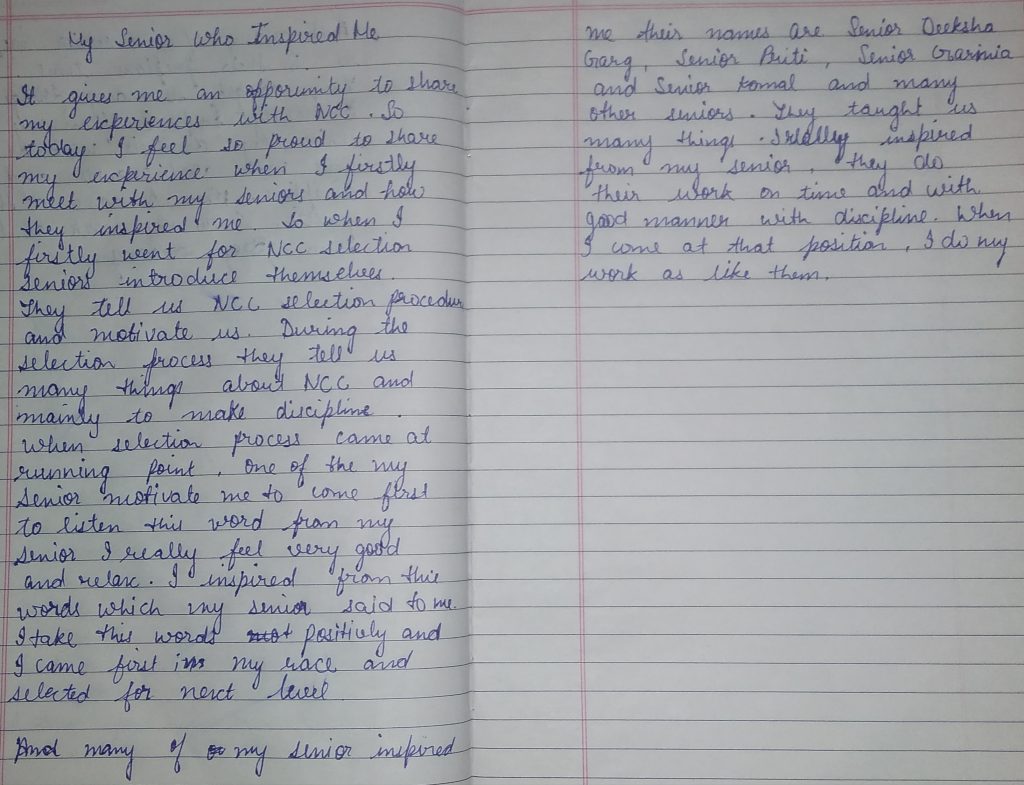 My Senior Who Inspired Me
It gives me an opporunity to share
my experiences with NCC. So
today I feel so proud to share
my experience when I firstly
meet with my seniors and how
they inspired me. So when I
firstly went for NCC selection
seniors introduce themselves.
They tell us NCC selection procedure
and motivate us. During the
selection process they tell us
many things about NCC and
mainly to make discipline.
When selection process came at
running point, one of the my
senior motivate me to come first
to listen this word from my
senior I really feel very good
and relax. I inspired from this
words which my senior said to me.
I take this words positively and
I came first in my race and
selected for next level
And many of my senior inspired
me their names are Senior Deeksha
Garg, Senior Priti, Senior Garima
and Senior Komal and many
other seniors. They taught us
many things. I really inspired
from my senior, they do
their work on time and with
good manner with discipline. When
I come at that position, I do my
work as like them.